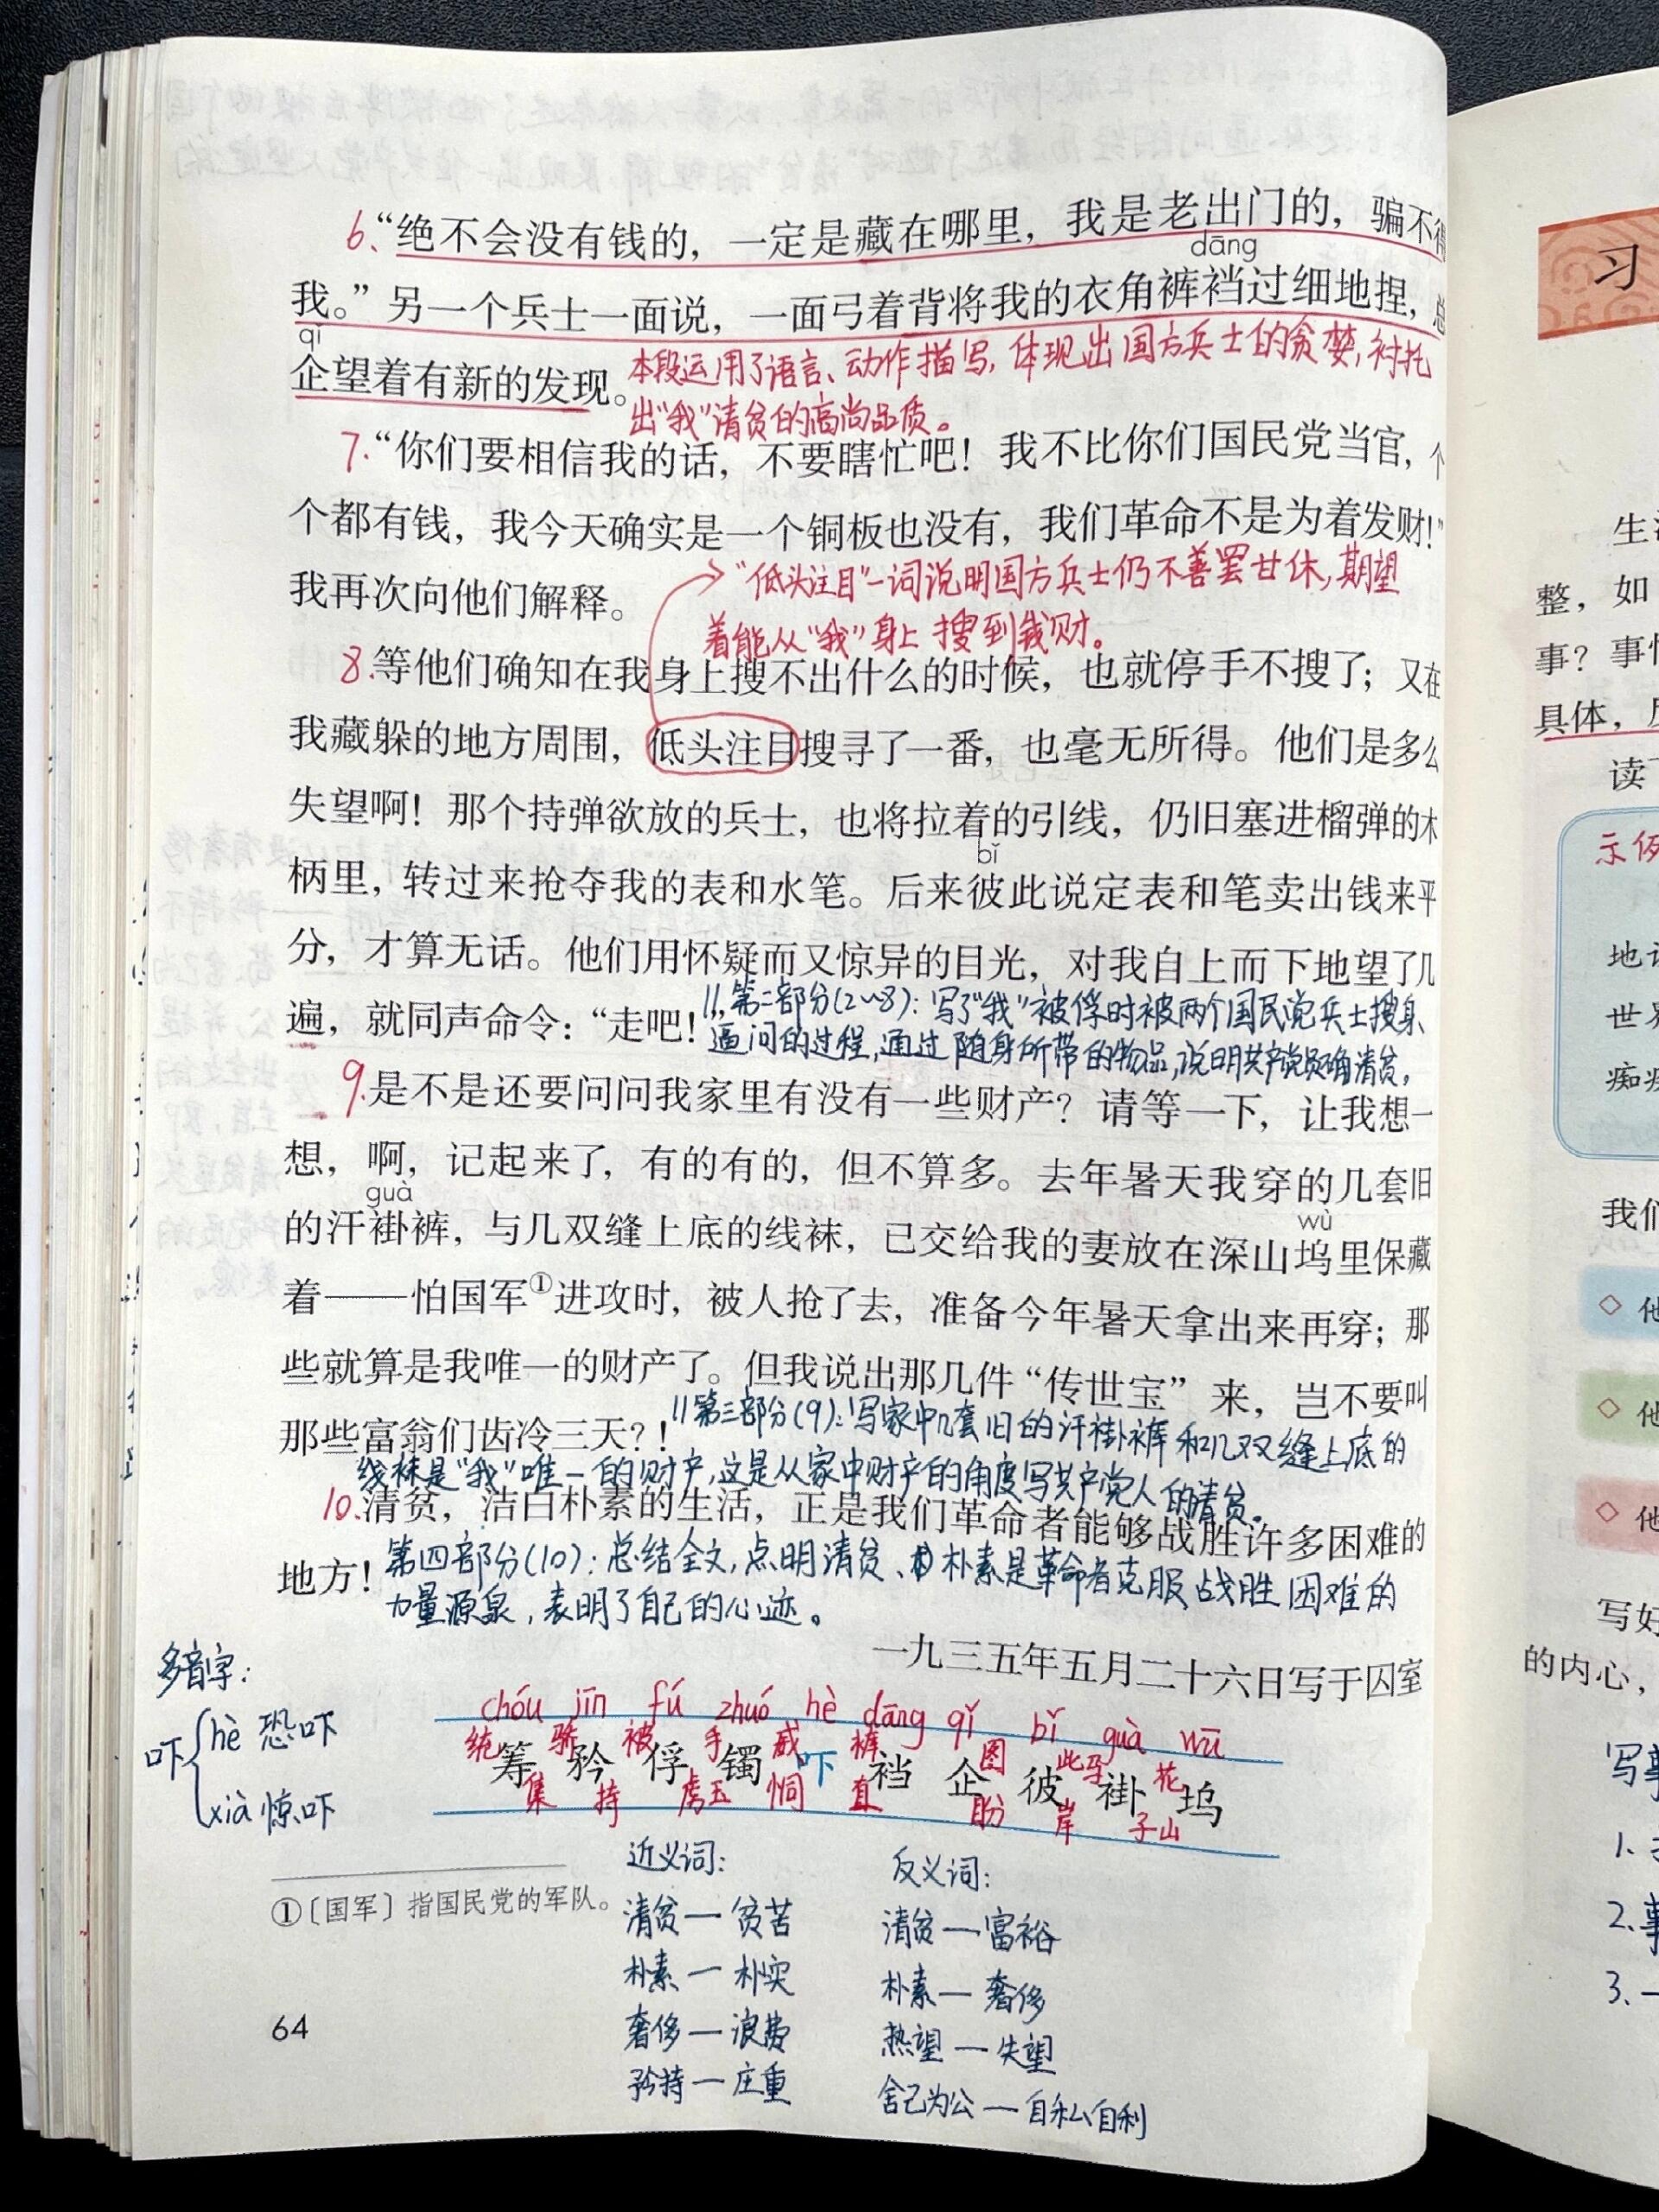 6、“绝不会没有钱的，一定是藏在哪里，我是老出门的，骗不得
dāng
我。”另一个兵士一面说，一面弓着背将我的衣角裤裆过细地捏，总
qǐ
企望着有新的发现。
本段运用了语言、动作描写，体现出国方兵士的贪婪，衬托
出“我”清贫的高尚品质。
7.“你们要相信我的话，不要瞎忙吧！我不比你们国民党当官，个
个都有钱，我今天确实是一个铜板也没有，我们革命不是为着发财！”
我再次向他们解释。
“低头注目”一词说明国方兵士仍不善罢甘休，期望
着能从“我”身上搜到钱财。
8.等他们确知在我身上搜不出什么的时候，也就停手不搜了；又在
我藏躲的地方周围，低头注目搜寻了一番，也毫无所得。他们是多么
失望啊！那个持弹欲放的兵士，也将拉着的引线，仍旧塞进榴弹的木
bǐ
柄里，转过来抢夺我的表和水笔。后来彼此说定表和笔卖出钱来平
分，才算无话。他们用怀疑而又惊异的目光，对我自上而下地望了几
遍，就同声命令：“走吧！
11第二部分(2~8)：写了“我”被俘时被两个国民党兵士搜身
逼问的过程，通过随身所带的物品，说明共产党员的清贫。
9.是不是还要问问我家里有没有一些财产？请等一下，让我想一
想，啊，记起来了，有的有的，但不算多。去年暑天我穿的几套旧
guà
的汗褂裤，与几双缝上底的线袜，已交给我的妻放在深山坞里保藏
wù
着——怕国军①进攻时，被人抢了去，准备今年暑天拿出来再穿；那
些就算是我唯一的财产了。但我说出那几件“传世宝”来，岂不要叫
那些富翁们齿冷三天？！
11第三部分(9)：写家中几套旧的汗褂裤和几双缝上底的
线袜是“我”唯一的财产，这是从家中财产的角度写共产党人的清贫。
10.清贫，洁白朴素的生活，正是我们革命者能够战胜许多困难的
地方！
第四部分(10)：总结全文，点明清贫、朴素是革命者克服、战胜困难的
力量源泉，表明了自己的心迹。
一九三五年五月二十六日写于囚室
多音字：
吓 hè 恐吓
xià 惊吓
chóu jīn fú zhuó hè dāng qǐ bǐ guà wū
统 骄 被 手 威 裤 图 此 马 花
筹 矜 俘 镯 吓 裆 企 彼 褂 坞
集 持 虏 玉 恫 直 盼 岸 子 山
近义词：
清贫—贫苦
朴素—朴实
奢侈—浪费
矜持—庄重
反义词：
清贫—富裕
朴素—奢侈
热望—失望
舍己为公—自私自利
①〔国军〕指国民党的军队。
64
习
生活
整，如
事？事情
具体，
读
示例
地说
世界
痴
我们
◇ 他
◇ 他
◇ 他
写好
的内心，
写事
1.
2.事
3.一